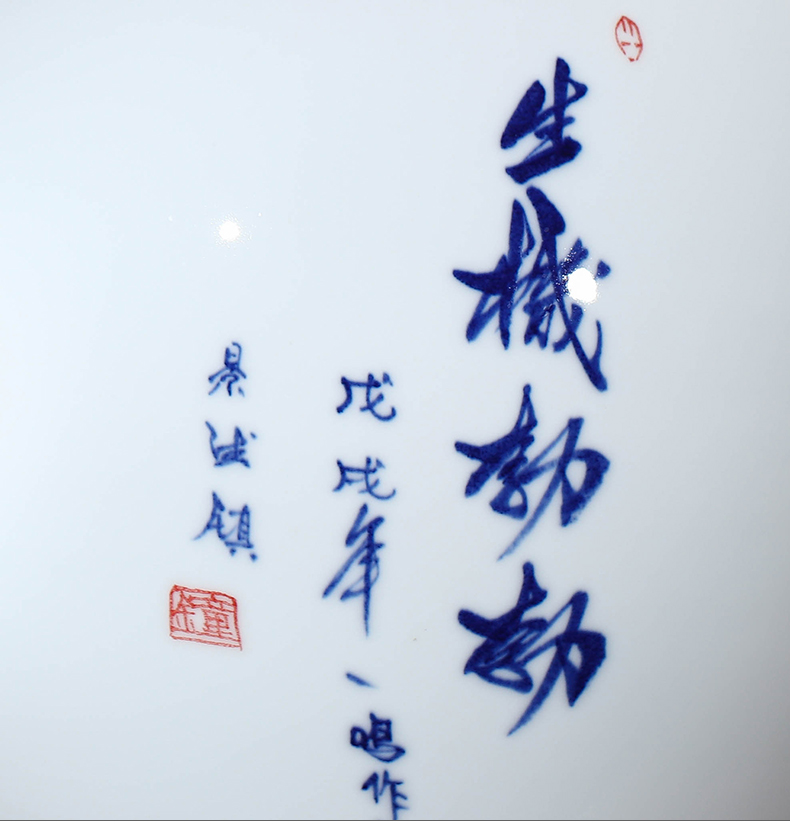 生機勃勃
戊戌年一鳴作
景德鎮